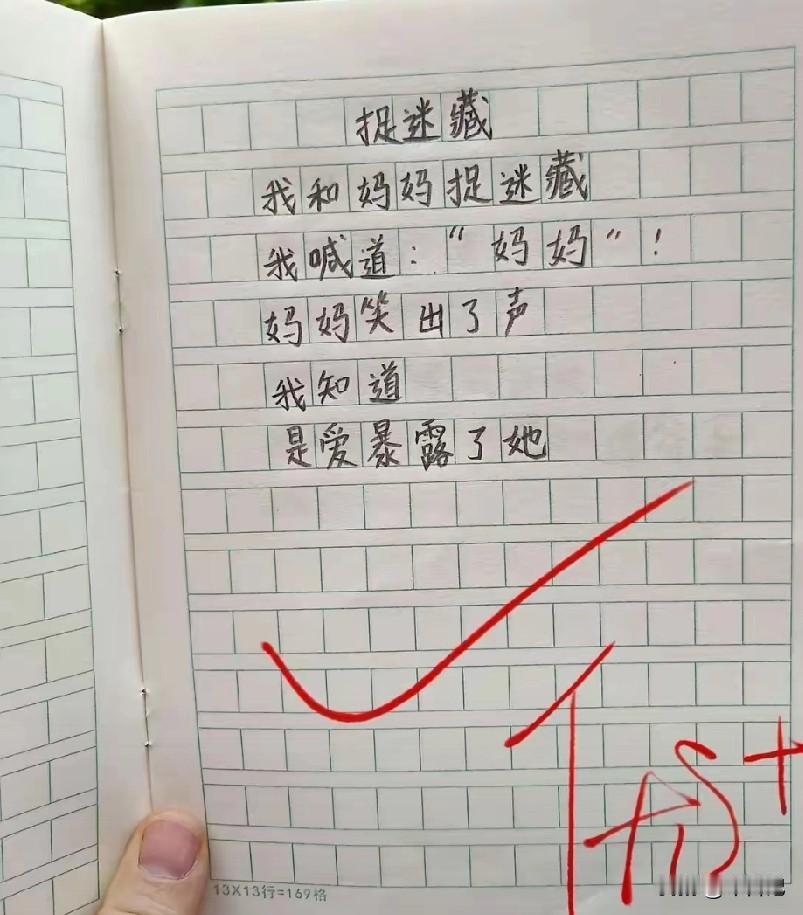 捉迷藏
我和妈妈捉迷藏
我喊道：“妈妈”！
妈妈笑出了声
我知道
是爱暴露了她
13X13行=169格